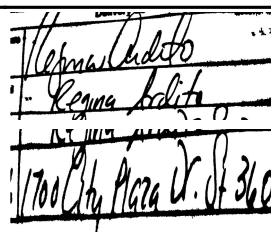 Regina Ardito
Regina Ardito
1700 City Plaza Dr. St 360